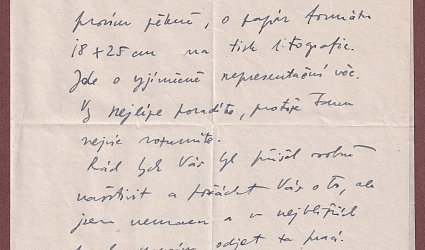 prosím pěkně, o papír formátu
18 x 25 cm na tisk litografie.
Jde o vyjímečně representační věc.
Vy nejlépe poradíte, protože tomu
nejvíc rozumíte.
Rád bych Vás byl přišel osobně
navštívit a požádat Vás o to, ale
jsem nemocen a v nejbližších
odjet za prací